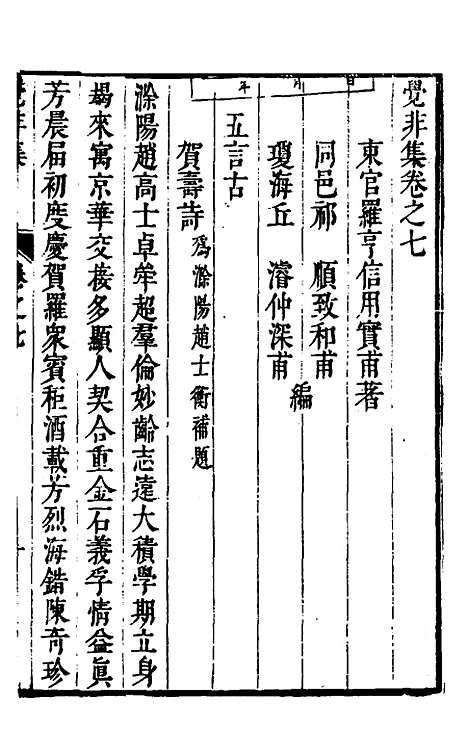 覺非集卷之七
東官羅亨信用實甫著
同邑祁　順致和甫
瓊海丘　濬仲深甫
編
五言古
賀壽詩為滁陽趙士衡補題
滁陽趙高士卓犖超羣倫妙齡志遠大積學期立身
朅來寓京華交接多顯人契合重金石義孚情益眞
芳晨屆初度慶賀羅衆賓秬酒載芳烈海錯陳奇珍